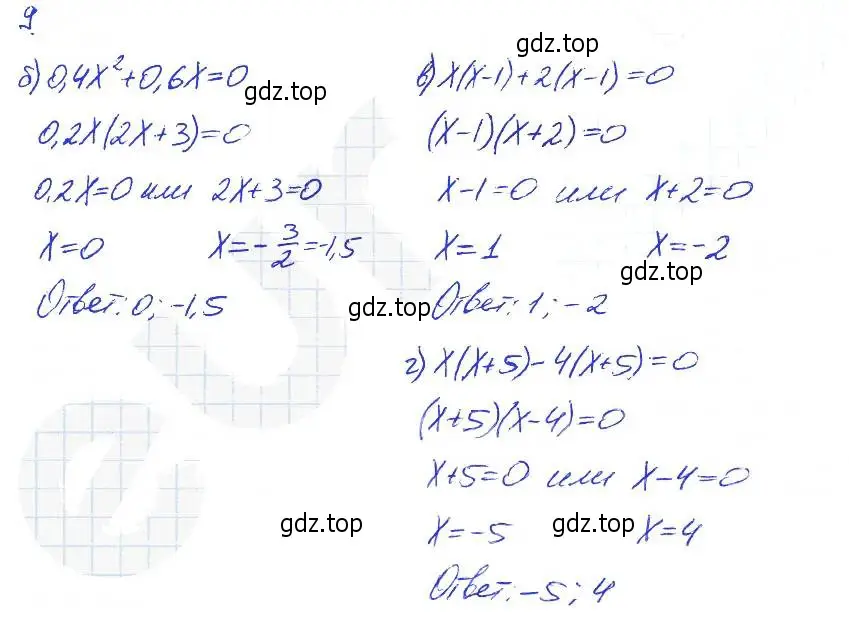 9
gdz.top
б) 0,4x²+0,6x=0
gdz.top
0,2x(2x+3)=0
0,2x=0 или 2x+3=0
x=0 x=-3/2=-1,5
Ответ: 0; -1,5
в) x(x-1)+2(x-1)=0
(x-1)(x+2)=0
x-1=0 или x+2=0
x=1 x=-2
gdz.top
gdz.top
Ответ: 1; -2
г) x(x+5)-4(x+5)=0
(x+5)(x-4)=0
x+5=0 или x-4=0
x=-5 x=4
gdz.top
gdz.top
Ответ: -5; 4